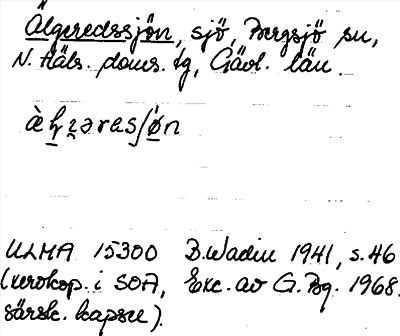 Älgeredssjön, sjö, Bergsjö sn,
N. Häls. doms. tg, Gävl. län.
ULMA 15300 B. Wadin 1941, s. 46
(xerokop. i SOA, Exc. av G. Bg. 1968.
särsk. kapsel).